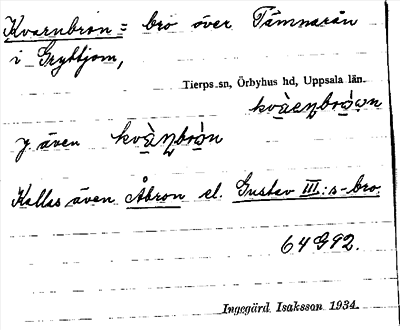 Kvarnbron = bro över Tämnarån
i Gryttjom,
Tierps sn, Örbyhus hd, Uppsala län.
y. även
Kallas även Åbron el. Gustav III:s-bro.
64G92.
Ingegärd Isaksson 1934.